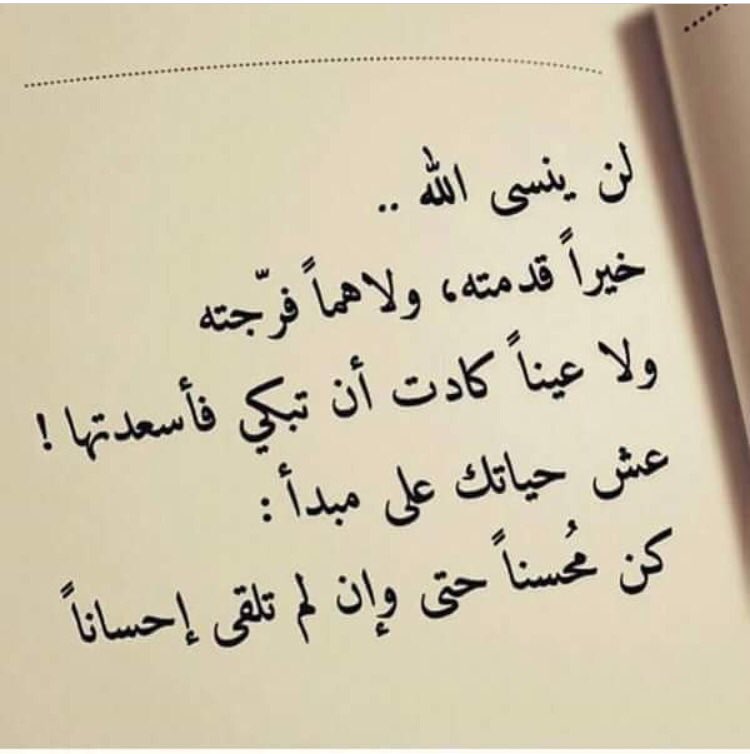 لن ينسى الله ..
خيراً قدمته، ولاهماً فرّجته
ولا عيناً كادت أن تبكي فأسعدتها !
عش حياتك على مبدأ :
كن مُحسناً حتى وإن لم تلقى إحساناً